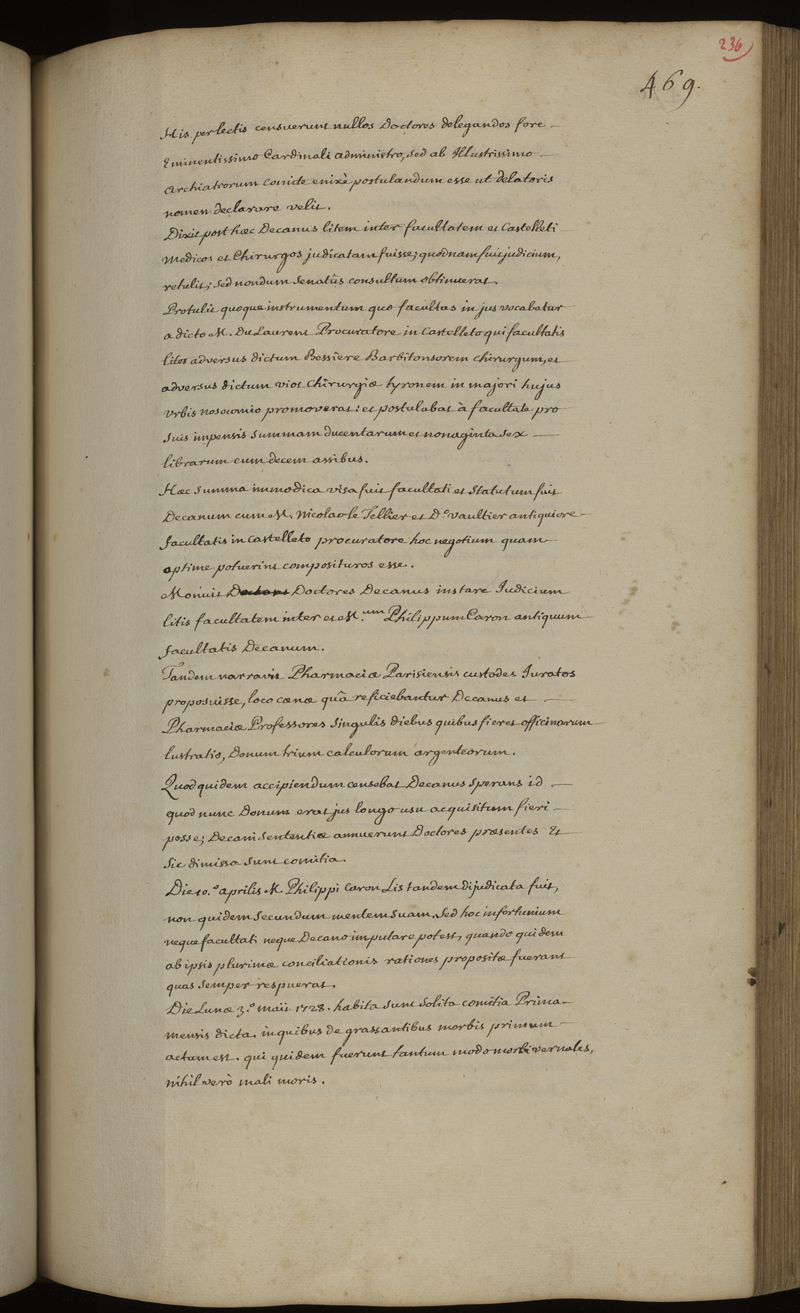 236
469.
His perlectis censuerunt nullos Doctores delegandos fore
Eminentissimo Cardinali administro, sed ab Illustrissimo
archiatrorum comite enixè postulandum esse ut delatoris
nomen declarare velit.
Dixit post hæc Decanus litem inter facultatem et Castelleti
medicos et Chirurgos judicatam fuisse; quodnam fuit judicium,
retulit; sed nondum Senatûs consultum obtinuerat.
Protulit quoque instrumentum quo facultas in jus vocabatur
a dicto M. Du Laurent Procuratore in Castelleto qui facultatis
lites adversus dictum Bessiere Barbitonsorem chirurgum, et
adversus dictum viot chirurgiæ tyronem in majori hujus
Urbis nosocomio promoverat: et postulabat à facultate pro
suis impensis summam ducentarum et nonaginta sex
librarum cum decem assibus.
Hæc summa immodica visa fuit facultati et statutum fuit
Decanum cum M. Nicolao le Tellier et D.o vaultier antiquiore
facultatis in Castelleto procuratore hoc negotium quam
optime potuerint composituros esse.
Monuit Doctores Decanus instare Judicium
litis facultatem inter et M.um Philippum Caron antiquum
facultatis Decanum.
Tandem narravit Pharmaciæ Parisiensis custodes Juratos
proposuisse, loco cœnæ quâ reficiebantur Decanus et
Pharmaciæ Professores singulis diebus quibus fieret officinarum
lustratio, Donum trium calculorum argenteorum.
Quod quidem accipiendum censebat Decanus sperans id
quod nunc Donum erat jus longo usu acquisitum fieri
posse; Decani sententiæ annuerunt Doctores præsentes Et
sic dimissa sunt comitia.
Die 10.a aprilis M. Philippi Caron Lis tandem dijudicata fuit,
non quidem secundum mentem suam, sed hoc infortunium
neque facultati neque Decano imputare potest, quando quidem
ab ipsis plurimæ conciliationis rationes propositæ fuerant
quas semper respuerat.
Die Lunæ 3.a maii 1728. habita sunt solita comitia Prima
mensis dicta. in quibus de grassantibus morbis primum
actum est. qui quidem fuerunt tantum modo morbi vernales,
nihil verò mali moris.